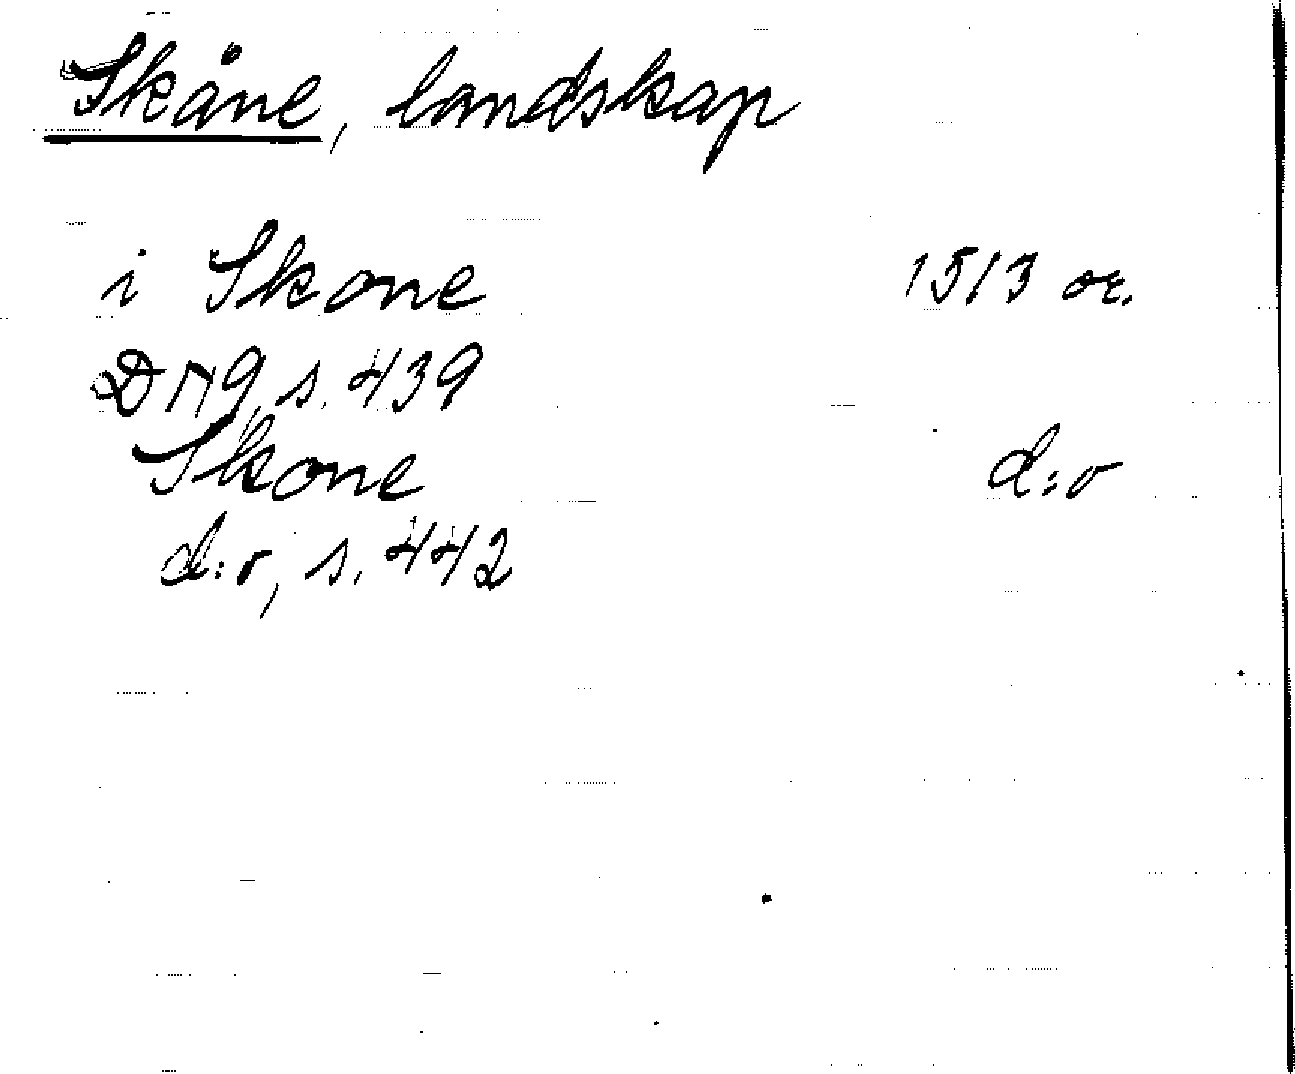 Skåne, landskap
i Skone 1513 or.
DN 9, s. 439
Skone d:o
d:o, s. 442